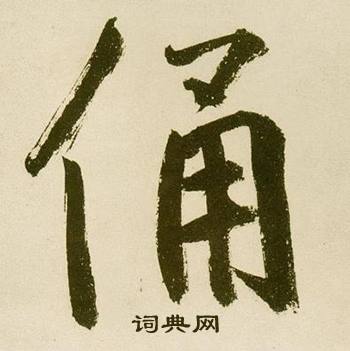 俑
词典网